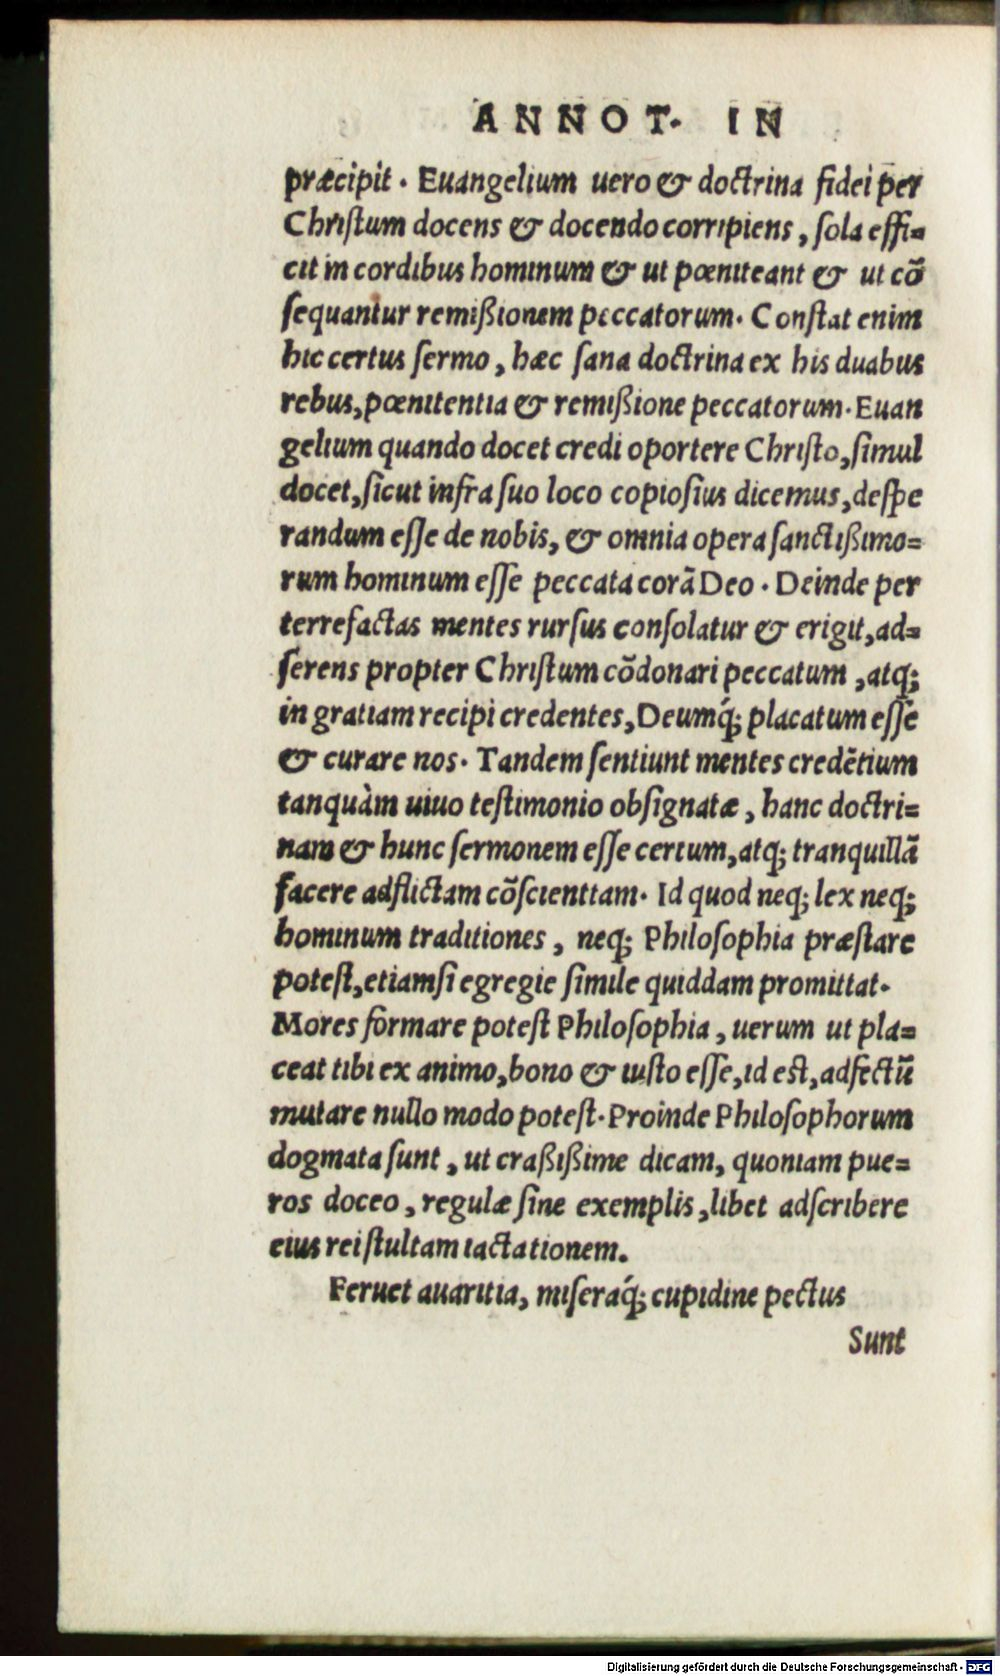 ANNOT. IN
præcipit. Euangelium uero & doctrina fidei per
Chriſtum docens & docendo corripiens, ſola effi=
cit in cordibus hominum & ut pœniteant & ut cō
ſequantur remißionem peccatorum. Conſtat enim
hic certus ſermo, hæc ſana doctrina ex his duabus
rebus, pœnitentia & remißione peccatorum. Euan
gelium quando docet credi oportere Chriſto, ſimul
docet, ſicut infra ſuo loco copioſius dicemus, deſpe
randum eſſe de nobis, & omnia opera ſanctißimo=
rum hominum eſſe peccata corā Deo. Deinde per
terrefactas mentes rurſus conſolatur & erigit, ad=
ſerens propter Chriſtum cōdonari peccatum, atq;
in gratiam recipi credentes, Deumq́; placatum eſſe
& curare nos. Tandem ſentiunt mentes credētium
tanquàm uiuo teſtimonio obſignatæ, hanc doctri=
nam & hunc ſermonem eſſe certum, atq; tranquillā
facere adflictam cōſcientiam. Id quod neq; lex neq;
hominum traditiones, neq; Philoſophia præſtare
poteſt, etiamſi egregie ſimile quiddam promittat.
Mores formare poteſt Philoſophia, uerum ut pla=
ceat tibi ex animo, bono & iuſto eſſe, id eſt, adfectū
mutare nullo modo poteſt. Proinde Philoſophorum
dogmata ſunt, ut craßißime dicam, quoniam pue=
ros doceo, regulæ ſine exemplis, libet adſcribere
eius rei ſtultam iactationem.
Feruet auaritia, miſeraq́; cupidine pectus
Sunt
Digitalisierung gefördert durch die Deutsche Forschungsgemeinschaft - DFG